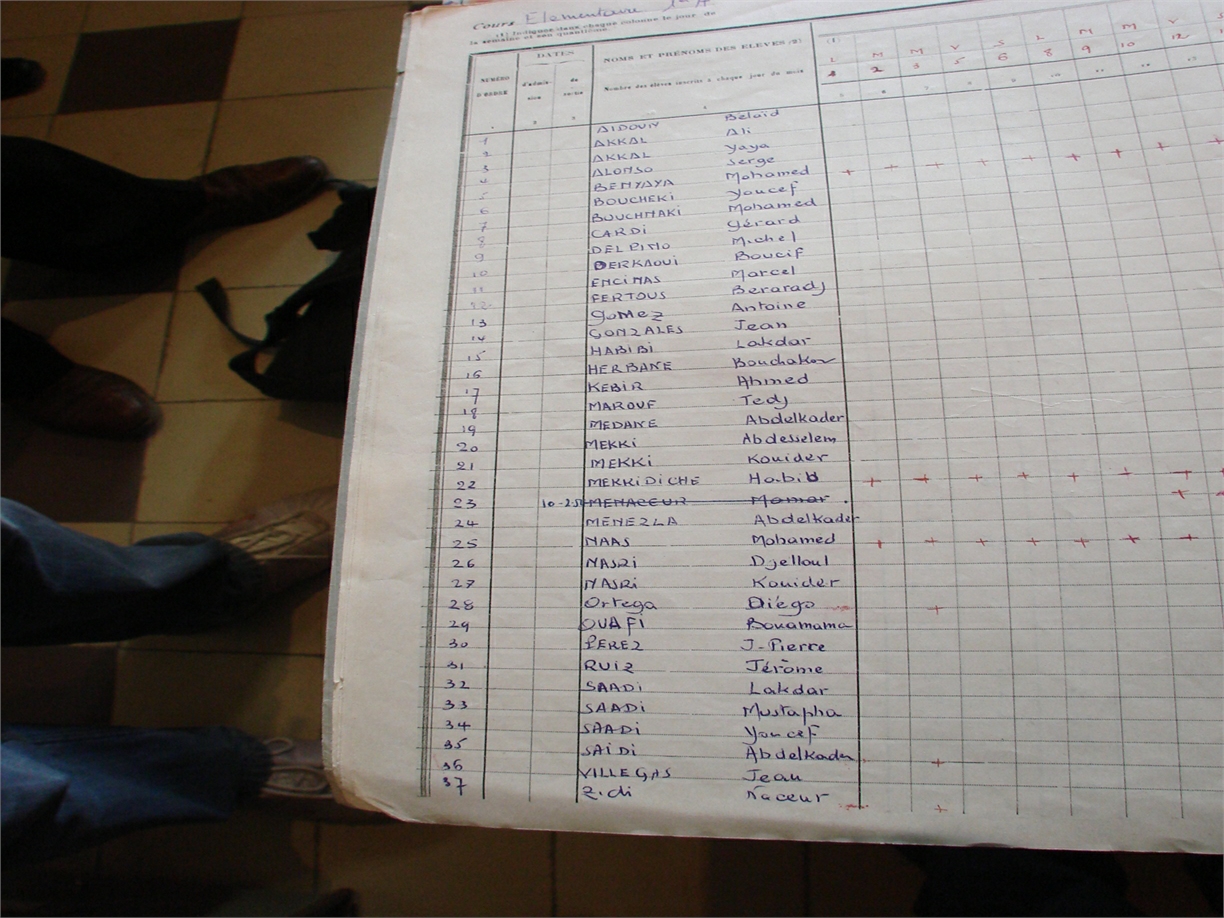 Cours Elementaire 1re A
(1) Indiquer dans chaque colonne le jour de
la semaine et son quantième.
NUMÉRO D'ORDRE
DATES
d'admission
de sortie
NOMS ET PRÉNOMS DES ÉLÈVES (2)
Nombre des élèves inscrits à chaque jour du mois
(1)
L M M V S L M M V
1 2 3 5 6 8 9 10 12
1 AIDOUN Belaid
2 AKKAL Ali
3 AKKAL Yaya
4 ALONSO Serge
5 BENYAYA Mohamed
6 BOUCHEKI Youcef
7 BOUCHNAKI Mohamed
8 CARDI Gérard
9 DEL PINO Michel
10 DERKAOUI Boucif
11 ENCINAS Marcel
12 FERTOUS Beraradj
13 GOMEZ Antoine
14 GONZALES Jean
15 HABIBI Lakdar
16 HERBANE Bouchakor
17 KEBIR Ahmed
18 MAROUF Tedj
19 MEDANE Abdelkader
20 MEKKI Abdesselem
21 MEKKI Kouider
22 MEKKIDICHE Habib
23 10-25 MENACEUR Mamar
24 MENEZLA Abdelkader
25 NAAS Mohamed
26 NASRI Djelloul
27 NASRI Kouider
28 Ortega Diégo
29 OUAFI Bouamama
30 PEREZ J-Pierre
31 RUIZ Jérôme
32 SAADI Lakdar
33 SAADI Mustapha
34 SAADI Youcef
35 SAIDI Abdelkader
36 VILLEGAS Jean
37 Zidi Naceur